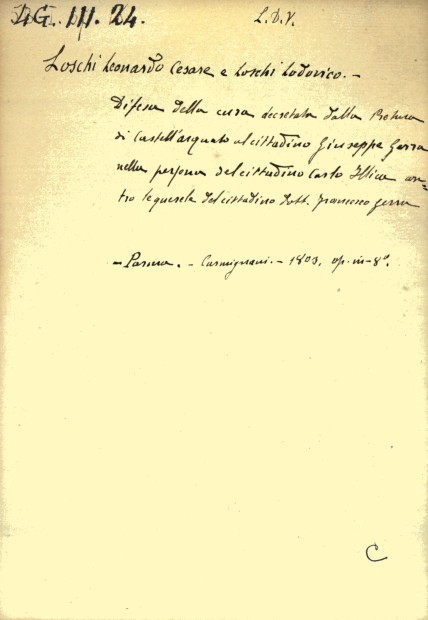 4G. III. 24.
L.D.V.
Loschi Leonardo Cesare e Loschi Lodovico. -
Difesa della cura decretata dalla Pretura
di Castell'arquato al cittadino Giuseppe Gerra
nella persona del cittadino Carlo Illica con=
tro le querele del cittadino Dott. Francesco Gerra
- Parma. - Carmignani. - 1803. op. in-8°.
C